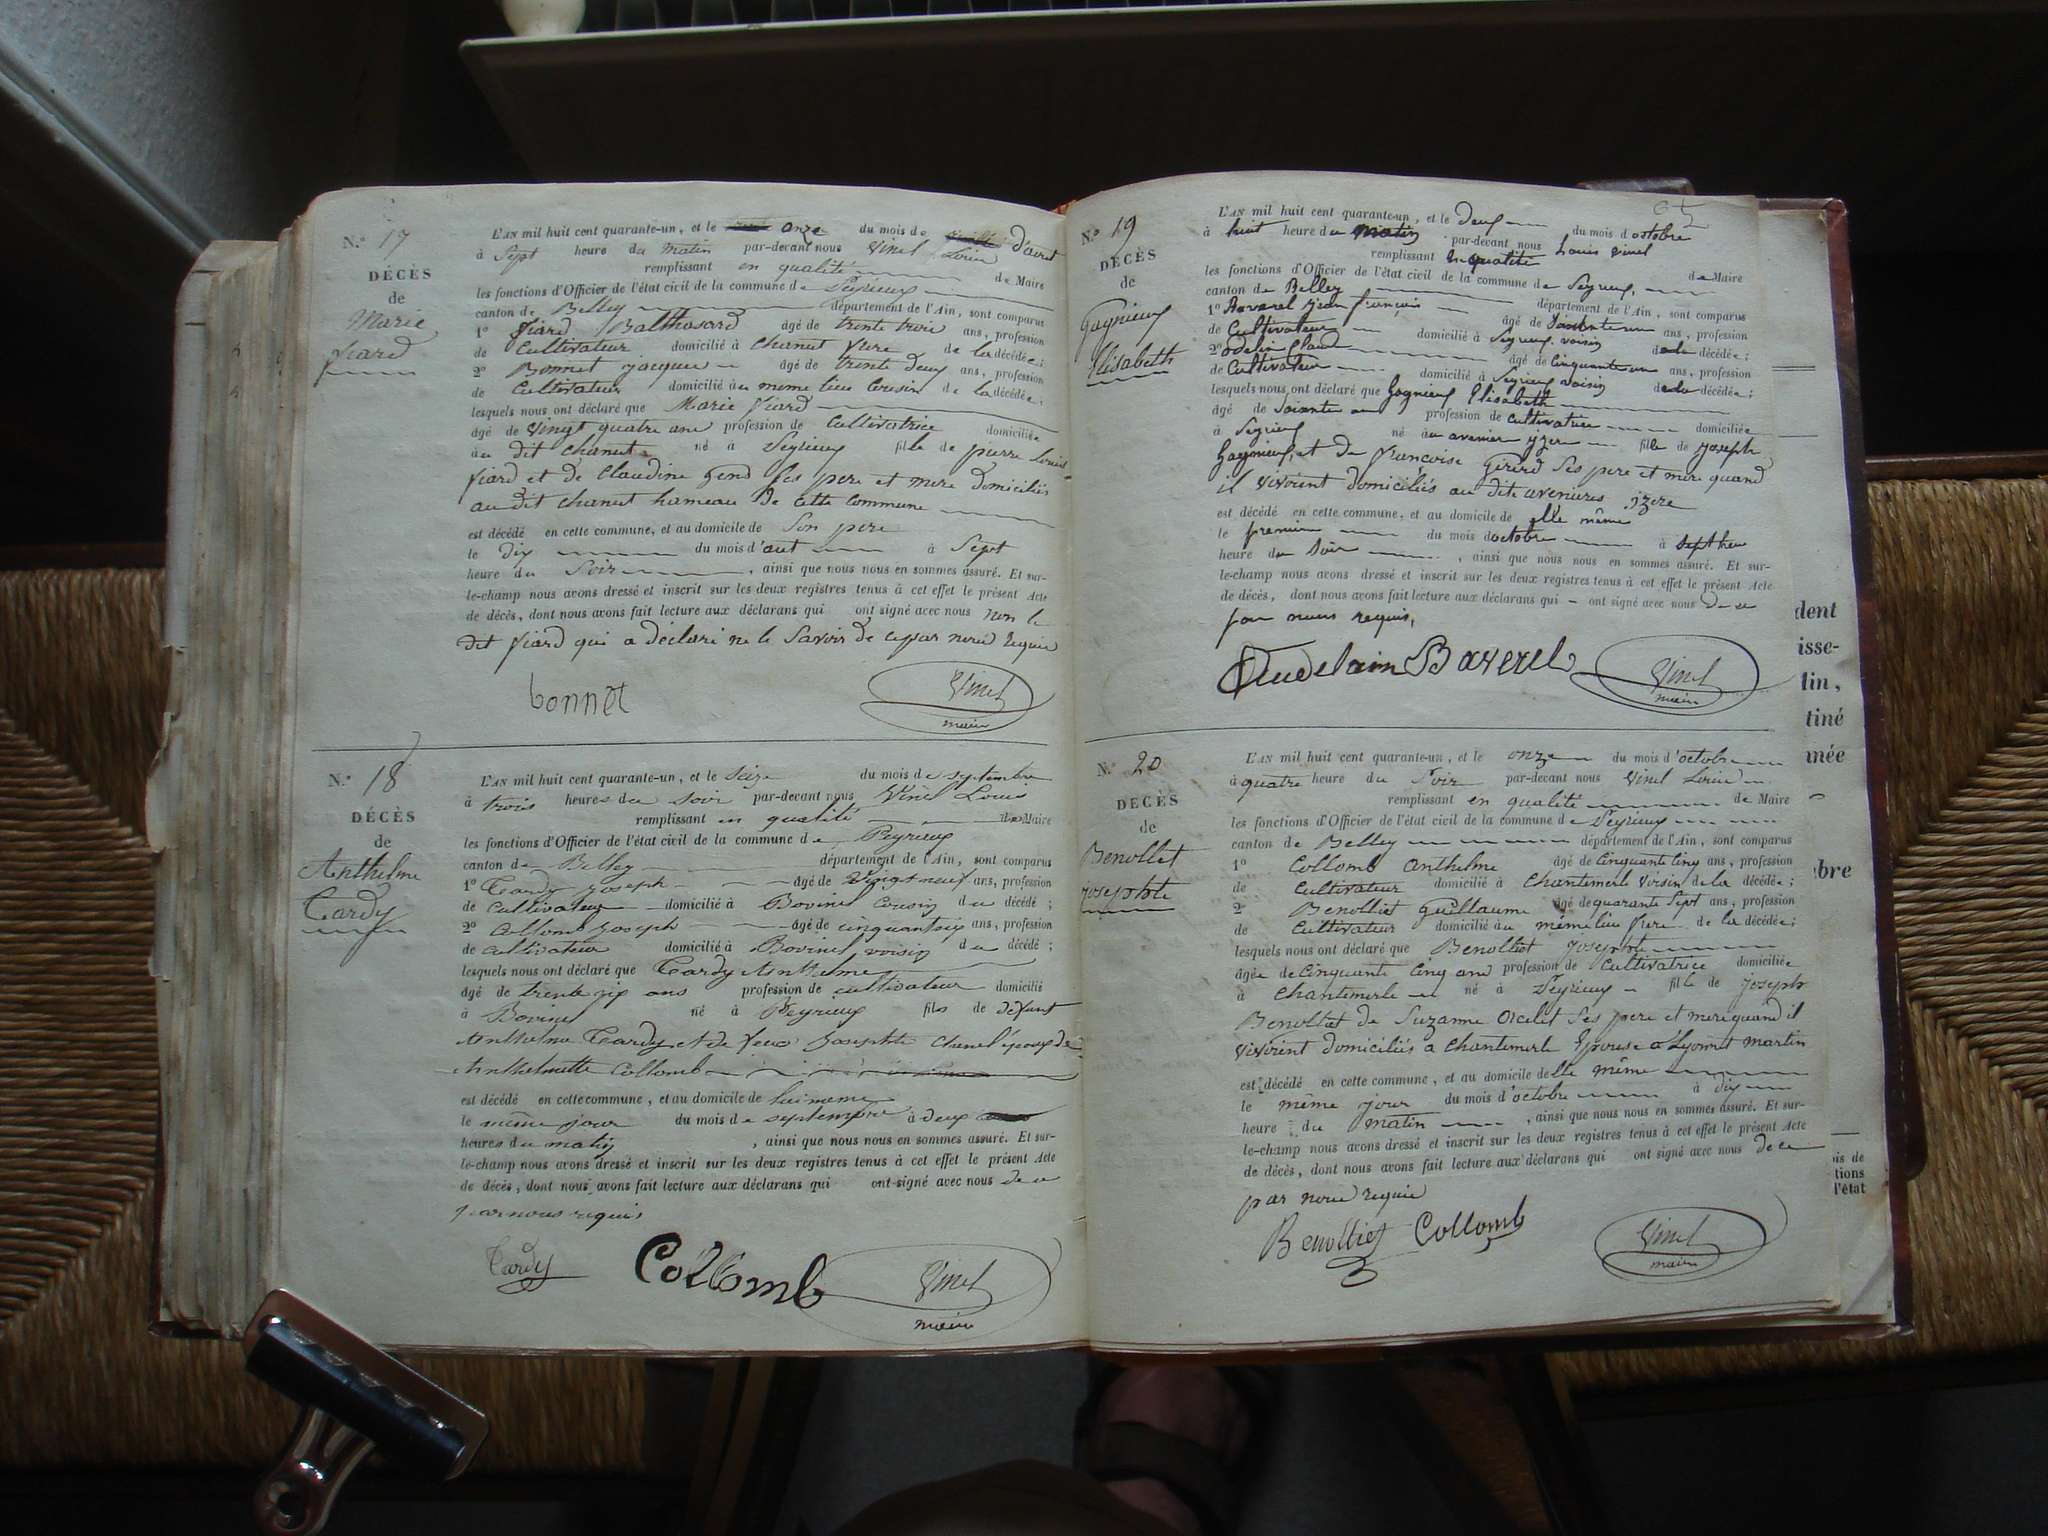 N.° 17
DÉCÈS
de
Marie
fiard
L'AN mil huit cent quarante-un, et le onze du mois de d'aout
à Sept heure du matin par-devant nous Vinel Louis
remplissant en qualité de Maire
les fonctions d'Officier de l'état civil de la commune de Peyrieux
canton de Belley département de l'Ain, sont comparus
1° fiard Balthasard âgé de trente trois ans, profession
de Cultivateur domicilié à Chanut frere de la décédée;
2° Bonnet jacque âgé de trente deux ans, profession
de Cultivateur domicilié au meme lieu Cousin de la décédée;
lesquels nous ont déclaré que Marie fiard
âgé de vingt quatre ans profession de Cultivatrice domiciliée
au dit Chanut né à Peyrieux fille de pierre Louis
fiard et de Claudine Gend Ses pere et mere domiciliés
au dit chanut hameau de cette commune
est décédé en cette commune, et au domicile de Son pere
le dix du mois d'aut à Sept
heure du Soir, ainsi que nous nous en sommes assuré. Et sur-
le-champ nous avons dressé et inscrit sur les deux registres tenus à cet effet le présent Acte
de décès, dont nous avons fait lecture aux déclarans qui ont signé avec nous non le
dit fiard qui a déclaré ne le Savoir de ce par nous requis
bonnet Vinel
maire
N.° 18
DÉCÈS
de
Anthelme
Tardy
L'AN mil huit cent quarante-un, et le Seize du mois de septembre
à trois heures du soir par-devant nous Vinel Louis
remplissant en qualité de Maire
les fonctions d'Officier de l'état civil de la commune de Peyrieux
canton de Belley département de l'Ain, sont comparus
1° Tardy Joseph âgé de Vingt neuf ans, profession
de cultivateur domicilié à Bovinel cousin du décédé;
2° Collomb Joseph âgé de cinquantesix ans, profession
de cultivateur domicilié à Bovinel voisin du décédé;
lesquels nous ont déclaré que Tardy Anthelme
âgé de trente six ans profession de cultivateur domicilié
à Bovinel né à Peyrieux fils de defunt
Anthelme Tardy et de feue Josephte Chanel époux de
Anthelmette Collomb
est décédé en cette commune, et au domicile de lui meme
le même jour du mois de septempre à deux
heures du matin, ainsi que nous nous en sommes assuré. Et sur-
le-champ nous avons dressé et inscrit sur les deux registres tenus à cet effet le présent Acte
de décès, dont nous avons fait lecture aux déclarans qui ont signé avec nous de ce
par nous requis
Tardy Collomb Vinel
maire
65
N.° 19
DÉCÈS
de
Gagnieux
Elisabeth
L'AN mil huit cent quarante-un, et le Deux du mois d'octobre
à huit heure du matin par-devant nous Louis Vinel
remplissant en qualité de Maire
les fonctions d'Officier de l'état civil de la commune de Peyrieux,
canton de Belley département de l'Ain, sont comparus
1° Bavarel jean françois âgé de Soixante un ans, profession
de Cultivateur domicilié à Peyrieux voisin de la décédée;
2° odelin Claud âgé de cinquante un ans, profession
de Cultivateur domicilié à Peyrieux voisin de la décédée;
lesquels nous ont déclaré que Gagnieux Elisabeth
âgé de Soixante ans profession de cultivatrice domiciliée
à Peyrieux né au avenier yzere fille de joseph
Gagnieux, et de françoise Girerd Ses pere et mere quand
il vivoient domiciliés au dite avenieres izere
est décédé en cette commune, et au domicile de elle même
le premier du mois d'octobre à Sept heu
heure du Soir, ainsi que nous nous en sommes assuré. Et sur-
le-champ nous avons dressé et inscrit sur les deux registres tenus à cet effet le présent Acte
de décès, dont nous avons fait lecture aux déclarans qui ont signé avec nous de ce
par nous requis,
Audelain Baverel Vinel
maire
N.° 20
DECÈS
de
Benollet
josephte
L'AN mil huit cent quarante-un, et le onze du mois d'octobre
à quatre heure du Soir par-devant nous Vinel Louis
remplissant en qualité de Maire
les fonctions d'Officier de l'état civil de la commune de Peyrieux
canton de Belley département de l'Ain, sont comparus
1° Collomb Anthelme âgé de Cinquante Cinq ans, profession
de Cultivateur domicilié à Chantemerle Voisin de la décédée;
2 Benolliet Guillaume âgé de quarante Sept ans, profession
de Cultivateur domicilié au même lieu frere de la décédée;
lesquels nous ont déclaré que Benolliet josephte
âgée de Cinquante Cinq ans profession de Cultivatrice domiciliée
à Chantemerle né à Peyrieux fille de joseph
Benolliet de Suzanne Ocelet Ses pere et mere quand il
vivoient domiciliés a Chantemerle Epouse a Lyonnet Martin
est décédé en cette commune, et au domicile delle même
le même jour du mois d'octobre à dix
heure du matin, ainsi que nous nous en sommes assuré. Et sur-
le-champ nous avons dressé et inscrit sur les deux registres tenus à cet effet le présent Acte
de décès, dont nous avons fait lecture aux déclarans qui ont signé avec nous de ce
par nous requis
Benolliet Collomb Vinel
maire
dent
isse-
lin,
tiné
mée
bre
is de
tions
l'état